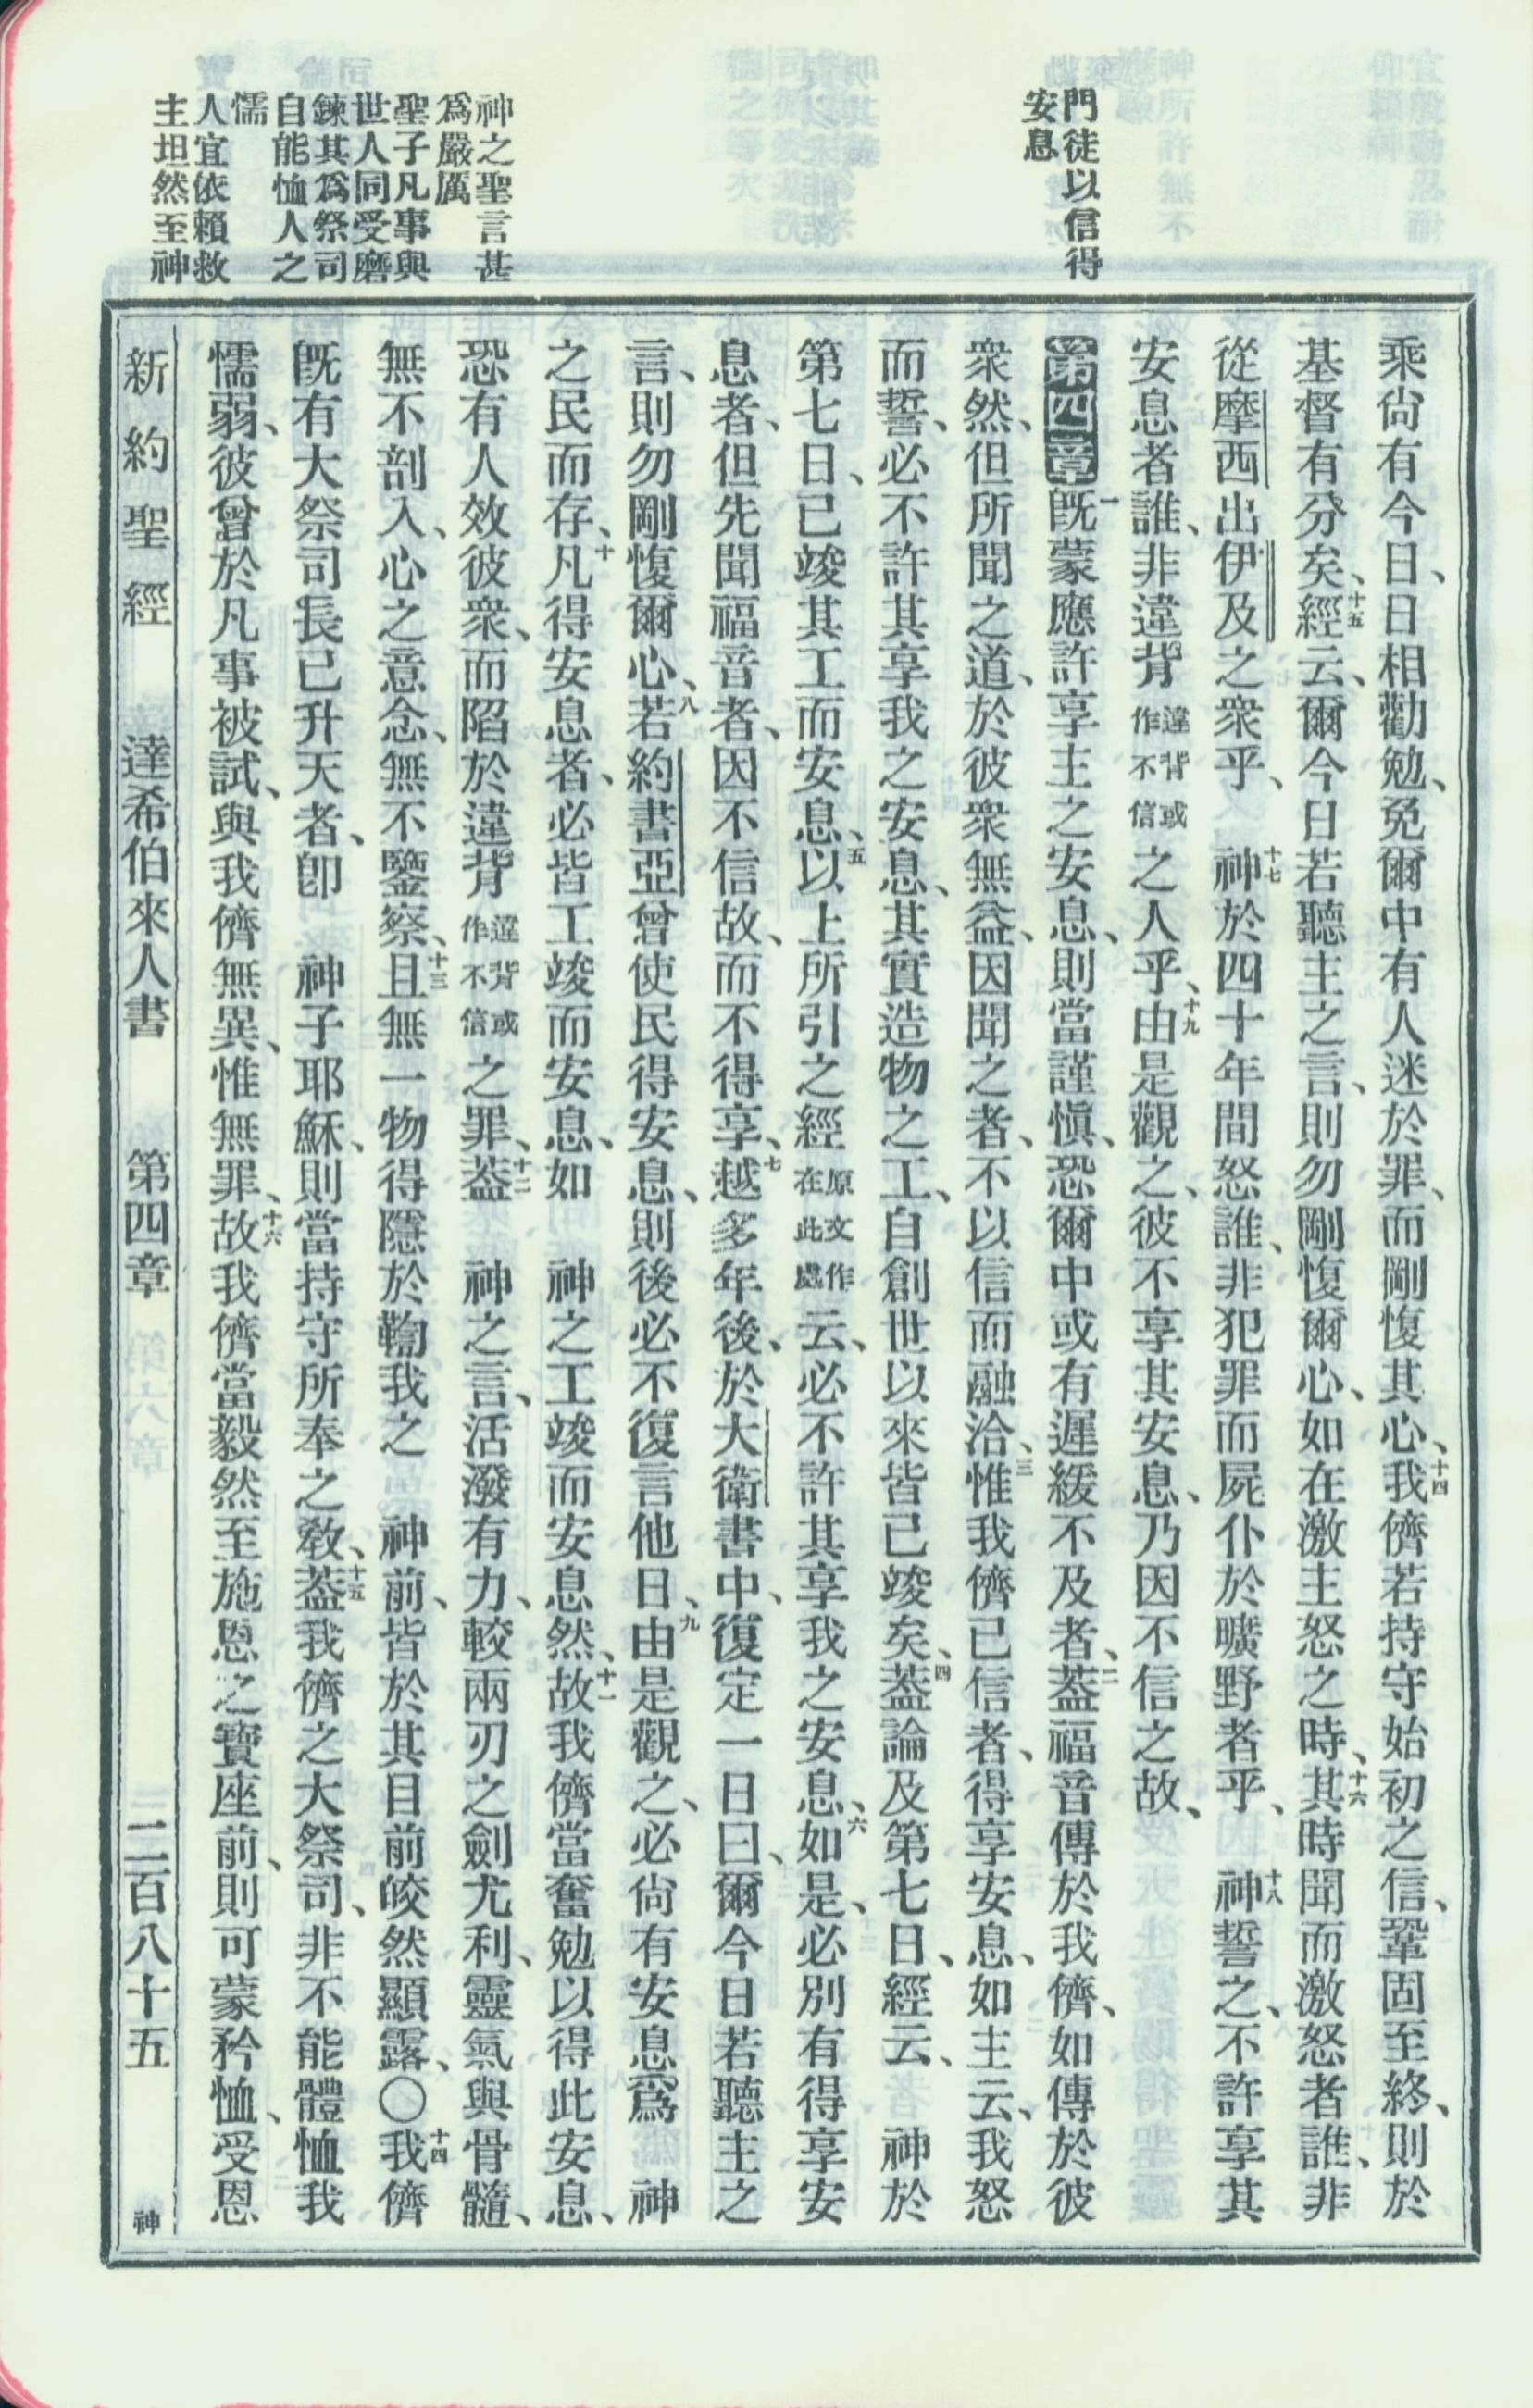 門徒以信得
安息
神之聖言甚
爲嚴厲
聖子凡事與
世人同受磨
鍊其爲祭司
自能恤人之
懦
人宜依賴救
主坦然至神
乘尙有今日、日相勸勉、免爾中有人迷於罪、而剛愎其心、十四我儕若持守始初之信、鞏固至終、則於
基督有分矣、十五經云、爾今日若聽主之言、則勿剛愎爾心、如在激主怒之時、十六其時聞而激怒者誰、非
從摩西出伊及之衆乎、十七神於四十年間怒誰、非犯罪而屍仆於曠野者乎、十八神誓之、不許享其
安息者誰、非違背違背或作不信之人乎、十九由是觀之、彼不享其安息、乃因不信之故、
第四章一旣蒙應許享主之安息、則當謹愼、恐爾中或有遲緩不及者、二葢福音傳於我儕、如傳於彼
衆然、但所聞之道、於彼衆無益、因聞之者、不以信而融洽、三惟我儕已信者、得享安息、如主云、我怒
而誓、必不許其享我之安息、其實造物之工、自創世以來皆已竣矣、四葢論及第七日、經云、神於
第七日、已竣其工而安息、五以上所引之經原文作在此處云、必不許其享我之安息、六如是、必別有得享安
息者、但先聞福音者、因不信故、而不得享、七越多年後、於大衛書中、復定一日曰、爾今日若聽主之
言、則勿剛愎爾心、八若約書亞曾使民得安息、則後必不復言他日、九由是觀之、必尙有安息、爲神
之民而存、十凡得安息者、必皆工竣而安息、如神之工竣而安息然、十一故我儕當奮勉以得此安息、
恐有人效彼衆、而陷於違背違背或作不信之罪、十二葢神之言、活潑有力、較兩刃之劍尤利、靈氣與骨髓、
無不剖入、心之意念、無不鑒察、十三且無一物得隱於鞫我之神前、皆於其目前皎然顯露、〇十四我儕
旣有大祭司長已升天者、卽神子耶穌、則當持守所奉之敎、十五葢我儕之大祭司、非不能體恤我
懦弱、彼曾於凡事被試、與我儕無異、惟無罪、十六故我儕當毅然至施恩之寶座前、則可蒙矜恤、受恩
新約聖經 達希伯來人書 第四章 二百八十五 神